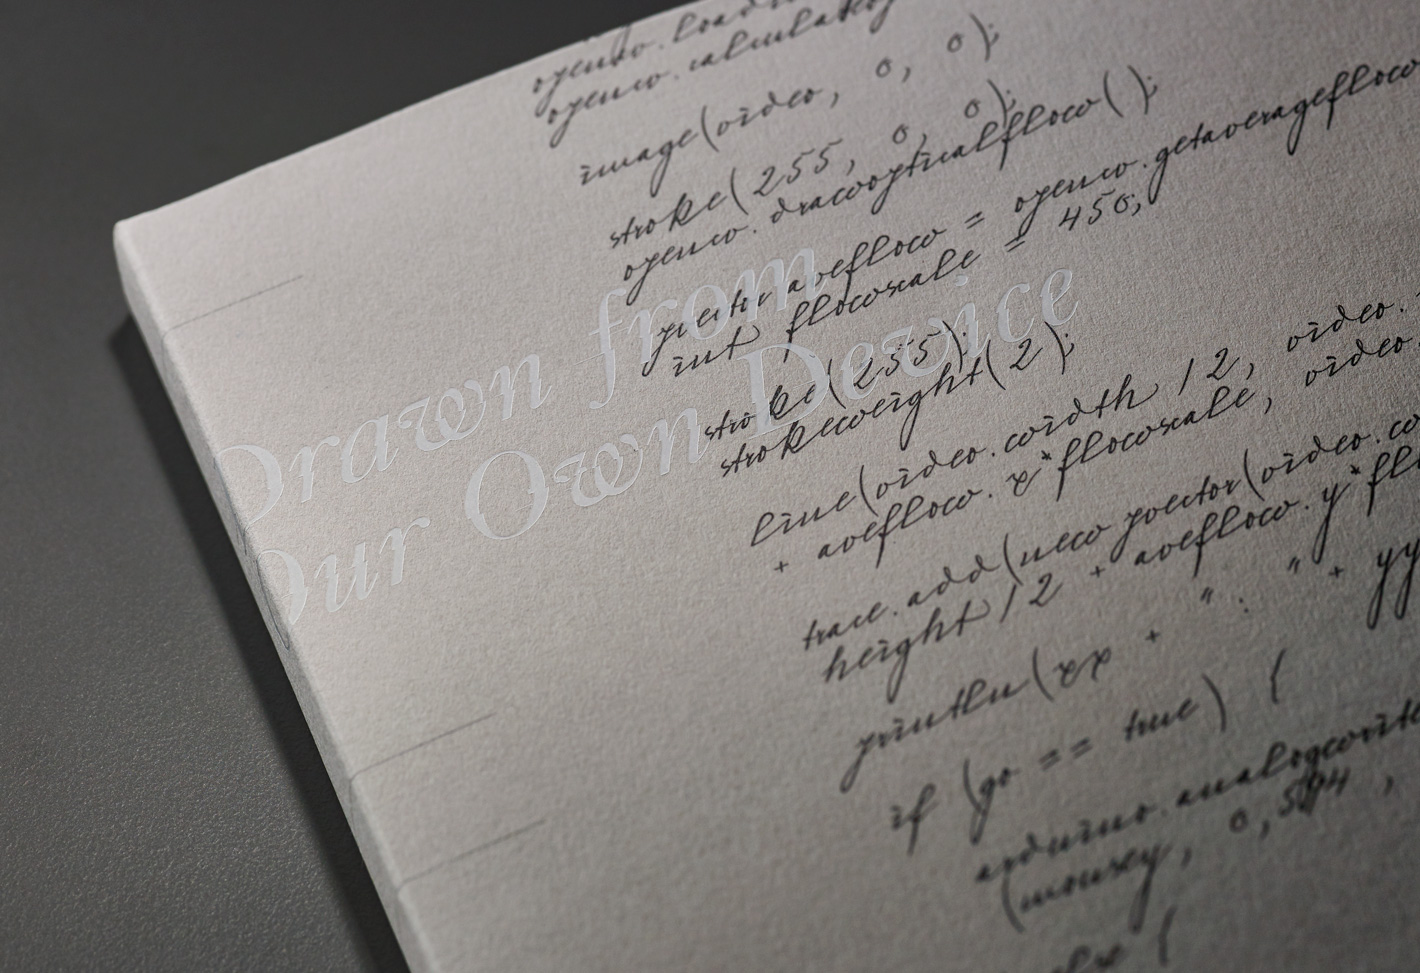 opencv.calculateop
image(video, 0, 0);
stroke(255, 0, 0);
opencv.drawopticalflow();
pvector aveflow = opencv.getaverageflow
int flowscale = 450;
stroke(255);
strokeweight(2);
line(video.width / 2, video.
+ aveflow.x*flowscale, video.
trace.add(new pvector(video.
height / 2 + aveflow.y*fl
println(xx + " : " + yy
if (go == true) {
arduino.analogwrite
(mousey, 0,
Drawn from
Our Own Device